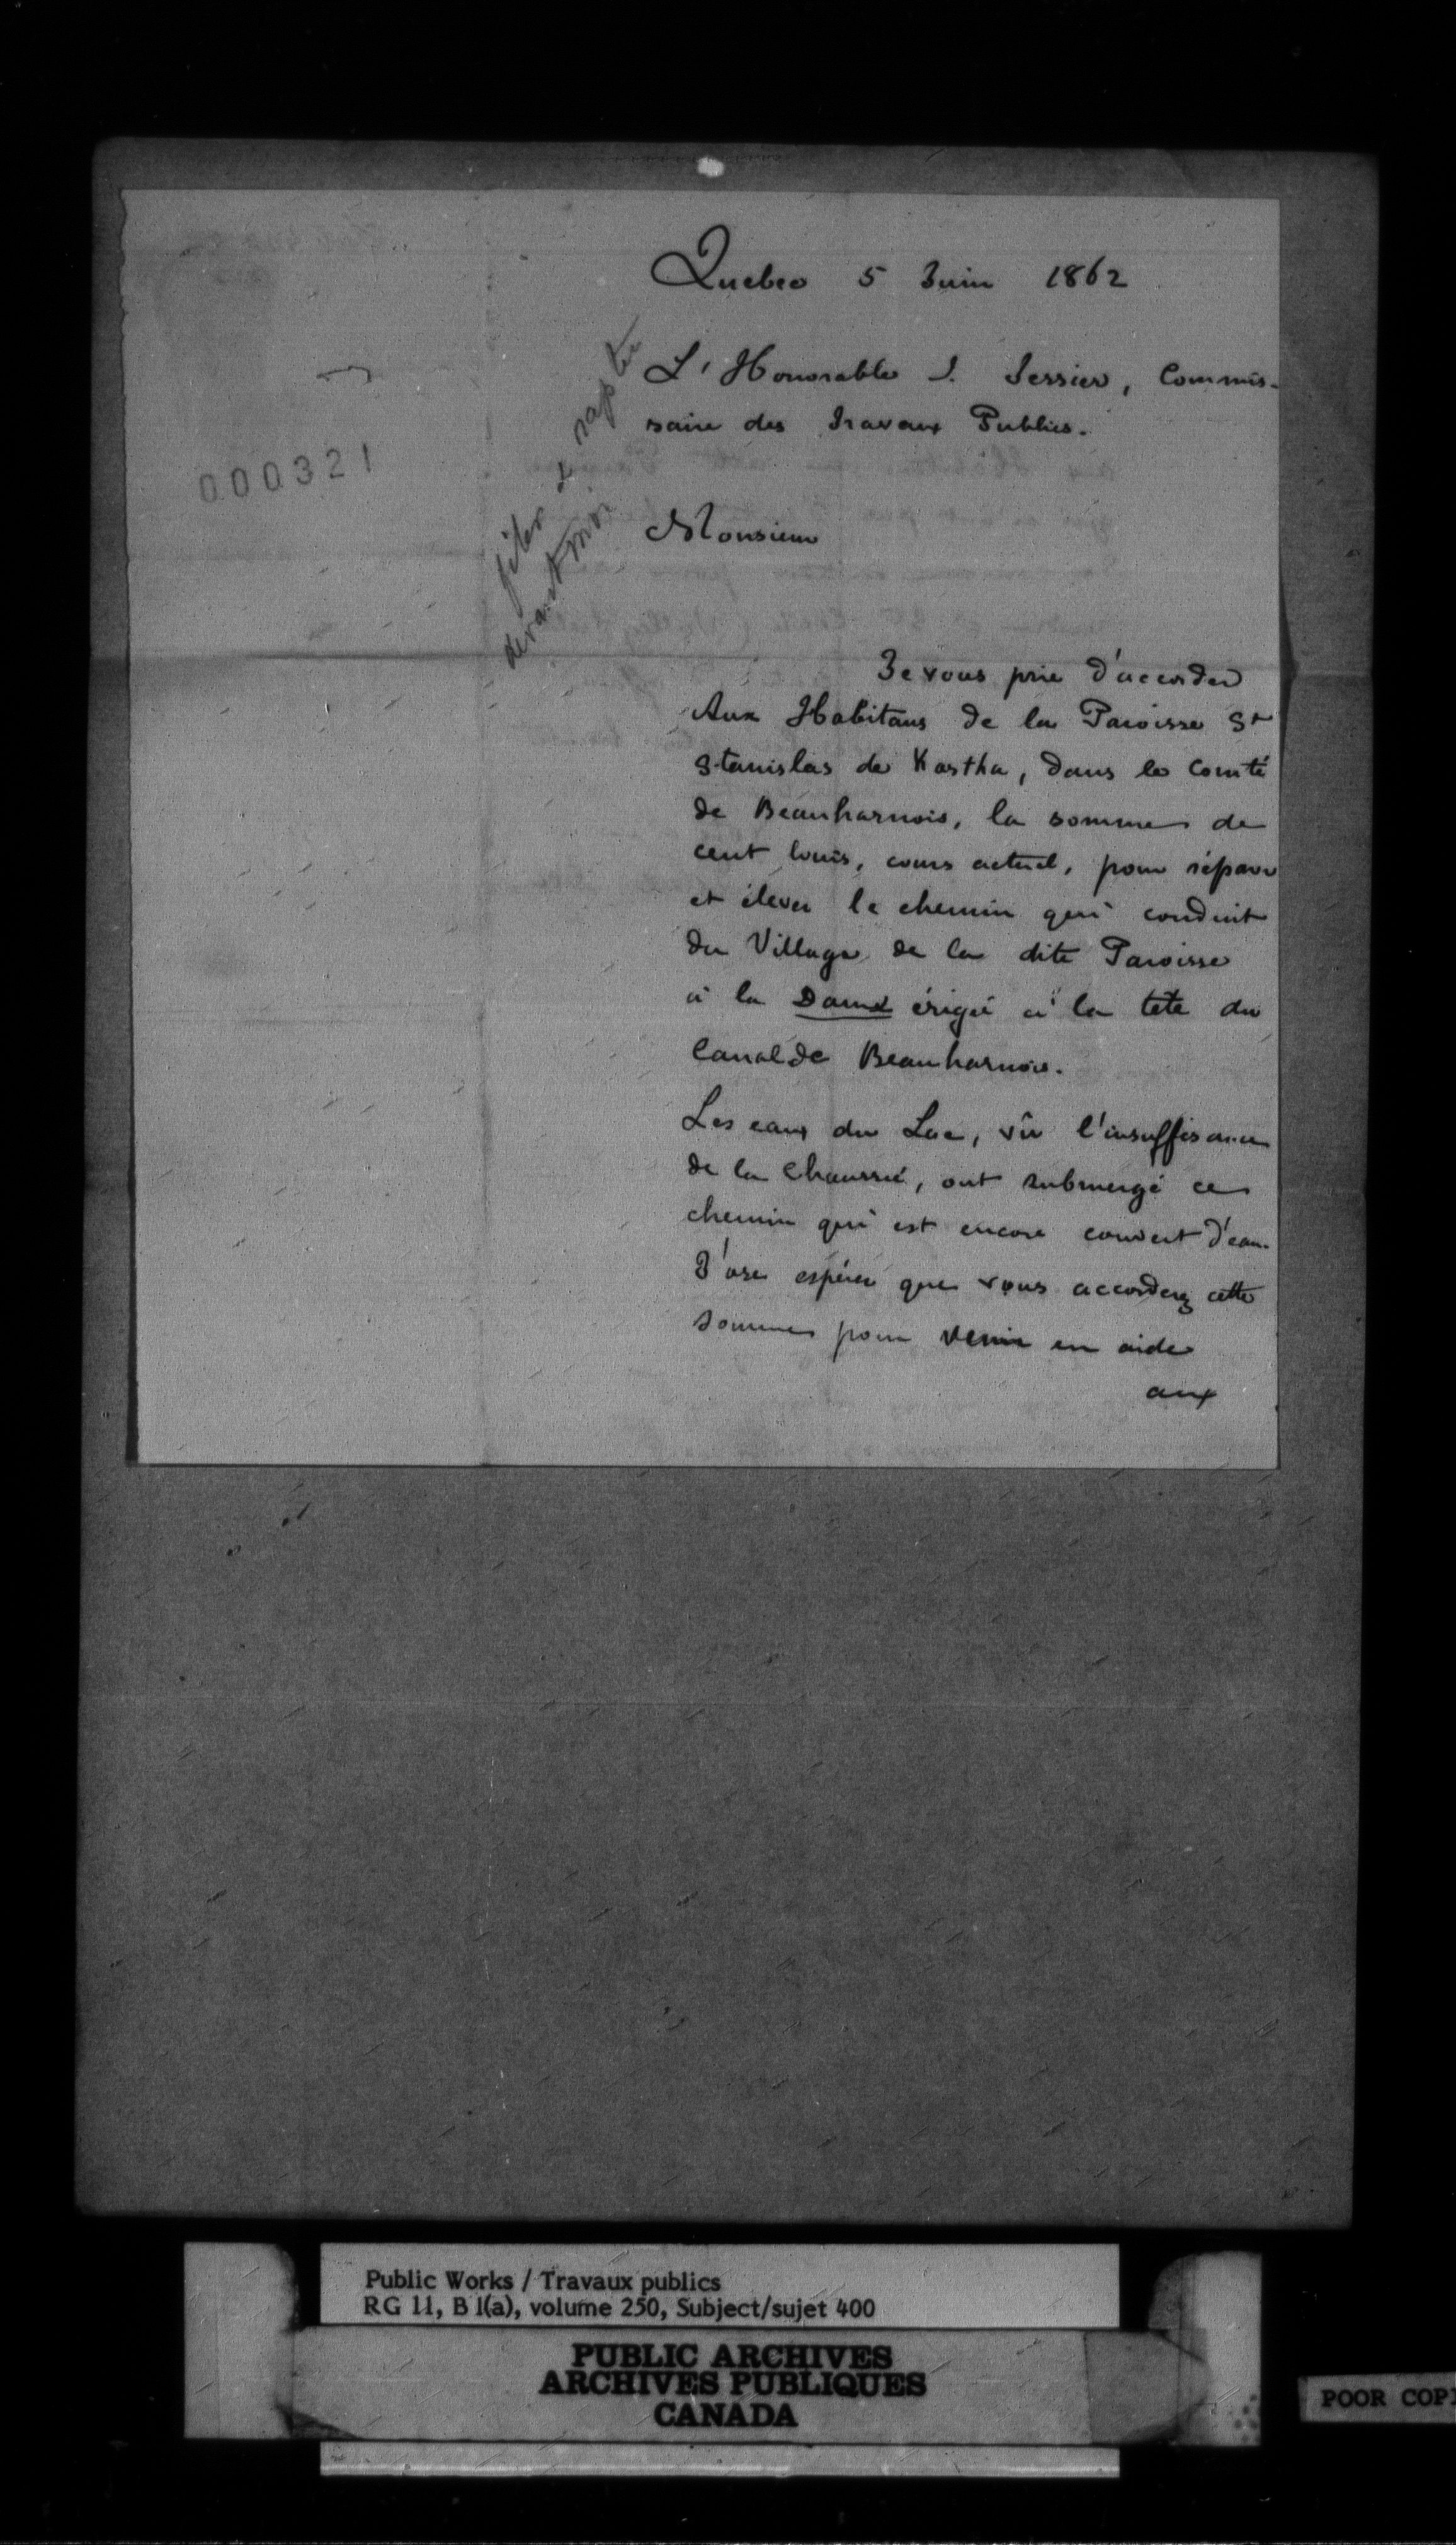 Quebec 5 Juin 1862
L'Honorable J. Tessier, Commis-
saire des Travaux Publics.
filer &
devant moi
000321
Monsieur
Je vous prie d'accorder
Aux Habitans de la Paroisse St
Stanislas de Kostka, dans le Comté
de Beauharnois, la somme de
cent louis, cours actuel, pour réparer
et élever le chemin qui conduit
du Village de la dite Paroisse
à la Damd érigé à la tête du
Canal de Beauharnois.
Les eaux du Lac, vû l'insuffisance
de la Chaussé, ont submergé ce
chemin qui est encore couvert d'eau.
J'ose espérer que vous accorderez cette
somme pour venir en aide
aux
Public Works / Travaux publics
RG 11, B 1(a), volume 250, Subject/sujet 400
PUBLIC ARCHIVES
ARCHIVES PUBLIQUES
CANADA
POOR COP